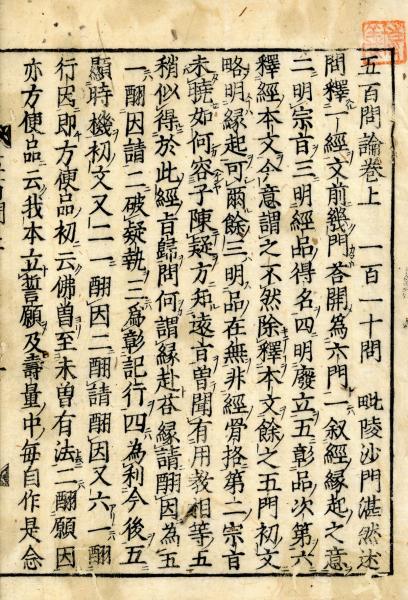 五百問論卷上　一百一十問　毗陵沙門湛然述
問釋一經文前幾門荅開爲六門一叙經緣起之意
二明宗旨三明經品得名四明廢立五彰品次第六
釋經本文今意謂之不然除釋本文餘之五門初文
略明緣起可爾餘三明品在無非經骨格第二宗旨
未曉如何容子陳疑方知遠旨曽聞有用教相等五
稍似得於此經旨歸問何謂緣赴荅緣請酬因爲五
一酬因請二破疑執三爲彰記行四爲利今後五
顯時機初文又二一酬因二酬請酬因又六一酬
行因即方便品初云佛曽至未曽有法二酬願因
亦方便品云我本立誓願及壽量中每自作是念